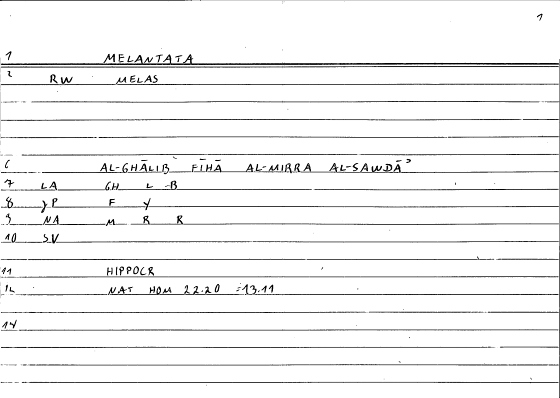 1
1 MELANTATA
2 RW MELAS
6 AL-GHĀLIB FĪHĀ AL-MIRRA AL-SAWDĀʾ
7 LA GH L B
8 γP F Y
9 NA M R R
10 SV
11 HIPPOCR
12 NAT HOM 22.20 =13.11
14